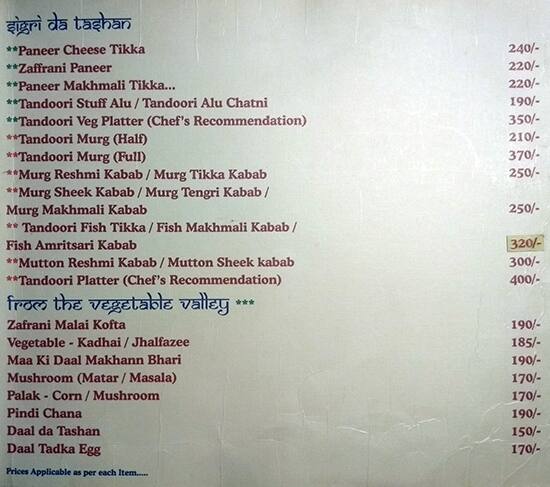 Sigri da Tashan
**Paneer Cheese Tikka 240/-
**Zaffrani Paneer 220/-
**Paneer Makhmali Tikka... 220/-
**Tandoori Stuff Alu / Tandoori Alu Chatni 190/-
**Tandoori Veg Platter (Chef's Recommendation) 350/-
**Tandoori Murg (Half) 210/-
**Tandoori Murg (Full) 370/-
**Murg Reshmi Kabab / Murg Tikka Kabab 250/-
**Murg Sheek Kabab / Murg Tengri Kabab /
Murg Makhmali Kabab 250/-
** Tandoori Fish Tikka / Fish Makhmali Kabab /
Fish Amritsari Kabab 320/-
**Mutton Reshmi Kabab / Mutton Sheek kabab 300/-
**Tandoori Platter (Chef's Recommendation) 400/-
from the vegetable valley ***
Zafrani Malai Kofta 190/-
Vegetable - Kadhai / Jhalfazee 185/-
Maa Ki Daal Makhann Bhari 190/-
Mushroom (Matar / Masala) 170/-
Palak - Corn / Mushroom 170/-
Pindi Chana 190/-
Daal da Tashan 150/-
Daal Tadka Egg 170/-
Prices Applicable as per each Item.....